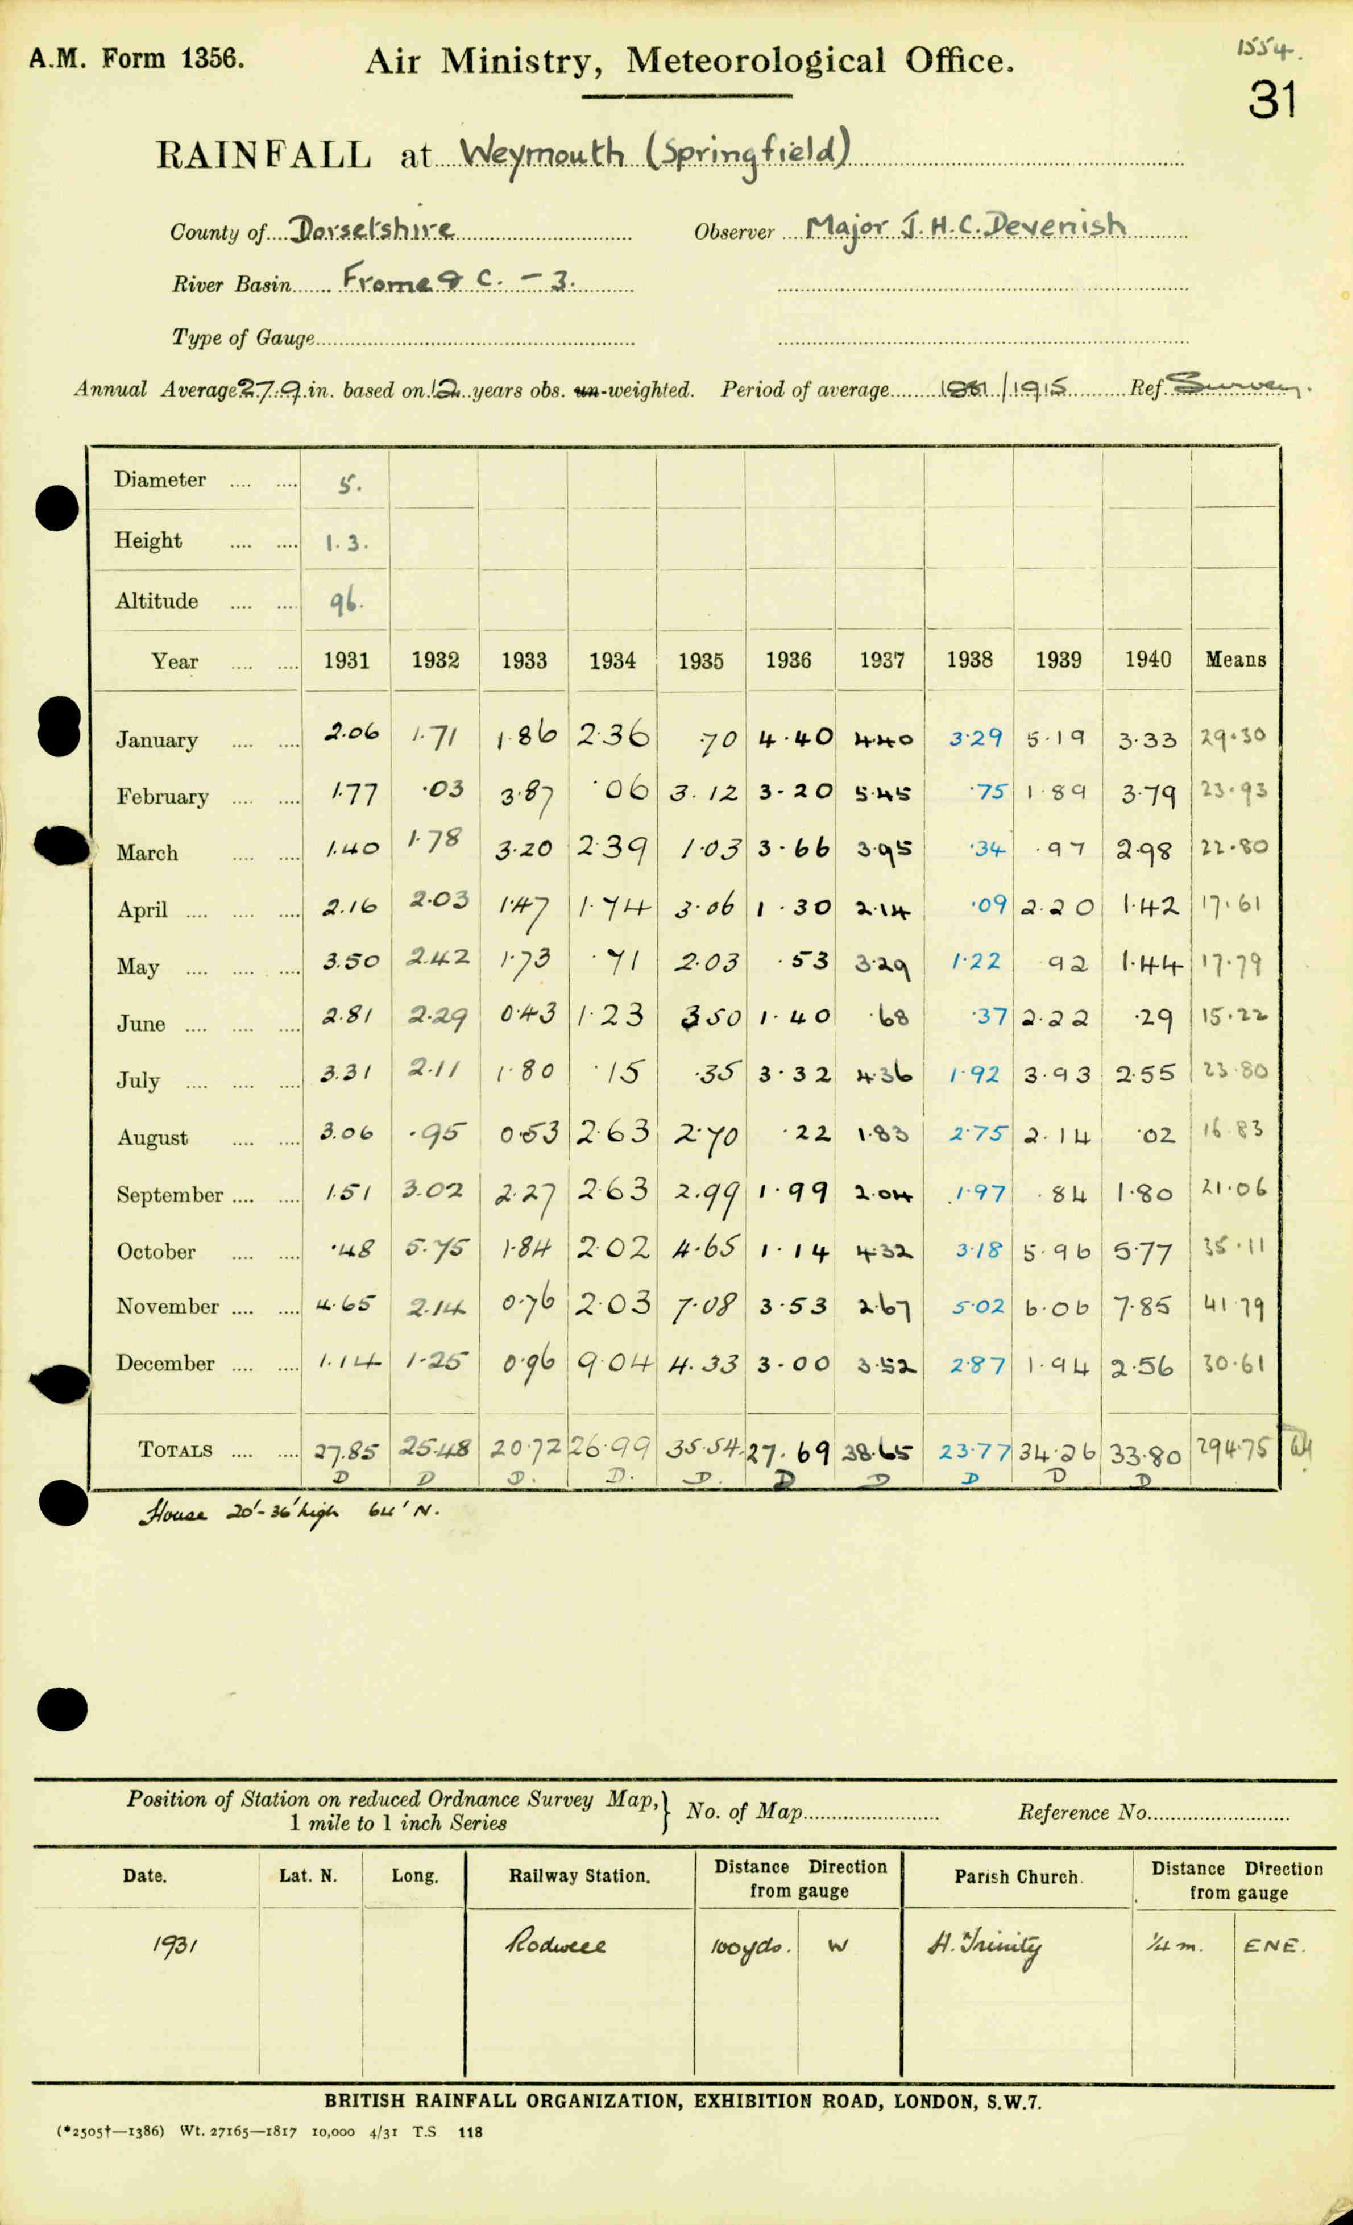 A.M. Form 1356.
Air Ministry, Meteorological Office.
1554.
31
RAINFALL at Weymouth (Springfield)
County of Dorsetshire Observer Major J. H. C. Devenish
River Basin Frome & C. - 3.
Type of Gauge
Annual Average 27.9 in. based on 12 years obs. un-weighted. Period of average 1881/1915 Ref. Survey.
Diameter 5.
Height 1.3.
Altitude 96.
Year 1931 1932 1933 1934 1935 1936 1937 1938 1939 1940 Means
January 2.06 1.71 1.86 2.36 .70 4.40 4.40 3.29 5.19 3.33 29.30
February 1.77 .03 3.87 .06 3.12 3.20 5.45 .75 1.89 3.79 23.93
March 1.40 1.78 3.20 2.39 1.03 3.66 3.95 .34 .97 2.98 22.80
April 2.16 2.03 1.47 1.74 3.06 1.30 2.14 .09 2.20 1.42 17.61
May 3.50 2.42 1.73 .71 2.03 .53 3.29 1.22 92 1.44 17.79
June 2.81 2.29 0.43 1.23 3.50 1.40 .68 .37 2.22 .29 15.22
July 3.31 2.11 1.80 .15 .35 3.32 4.36 1.92 3.93 2.55 23.80
August 3.06 .95 0.53 2.63 2.70 .22 1.83 2.75 2.14 .02 16.83
September 1.51 3.02 2.27 2.63 2.99 1.99 2.04 1.97 .84 1.80 21.06
October .48 5.75 1.84 2.02 4.65 1.14 4.32 3.18 5.96 5.77 35.11
November 4.65 2.14 0.76 2.03 7.08 3.53 2.67 5.02 6.06 7.85 41.79
December 1.14 1.25 0.96 9.04 4.33 3.00 3.52 2.87 1.94 2.56 30.61
TOTALS 27.85 25.48 20.72 26.99 35.54 27.69 38.65 23.77 34.26 33.80 294.75
D D D. D. D. D D D D D
House 20'-36' high 64' N.
Position of Station on reduced Ordnance Survey Map, } No. of Map Reference No.
1 mile to 1 inch Series
Date. Lat. N. Long. Railway Station. Distance Direction from gauge Parish Church. Distance Direction from gauge
1931 Rodwell 100yds. W H. Trinity 1/4 m. ENE.
BRITISH RAINFALL ORGANIZATION, EXHIBITION ROAD, LONDON, S.W.7.
(*2505†—1386) Wt. 27165—1817 10,000 4/31 T.S 118